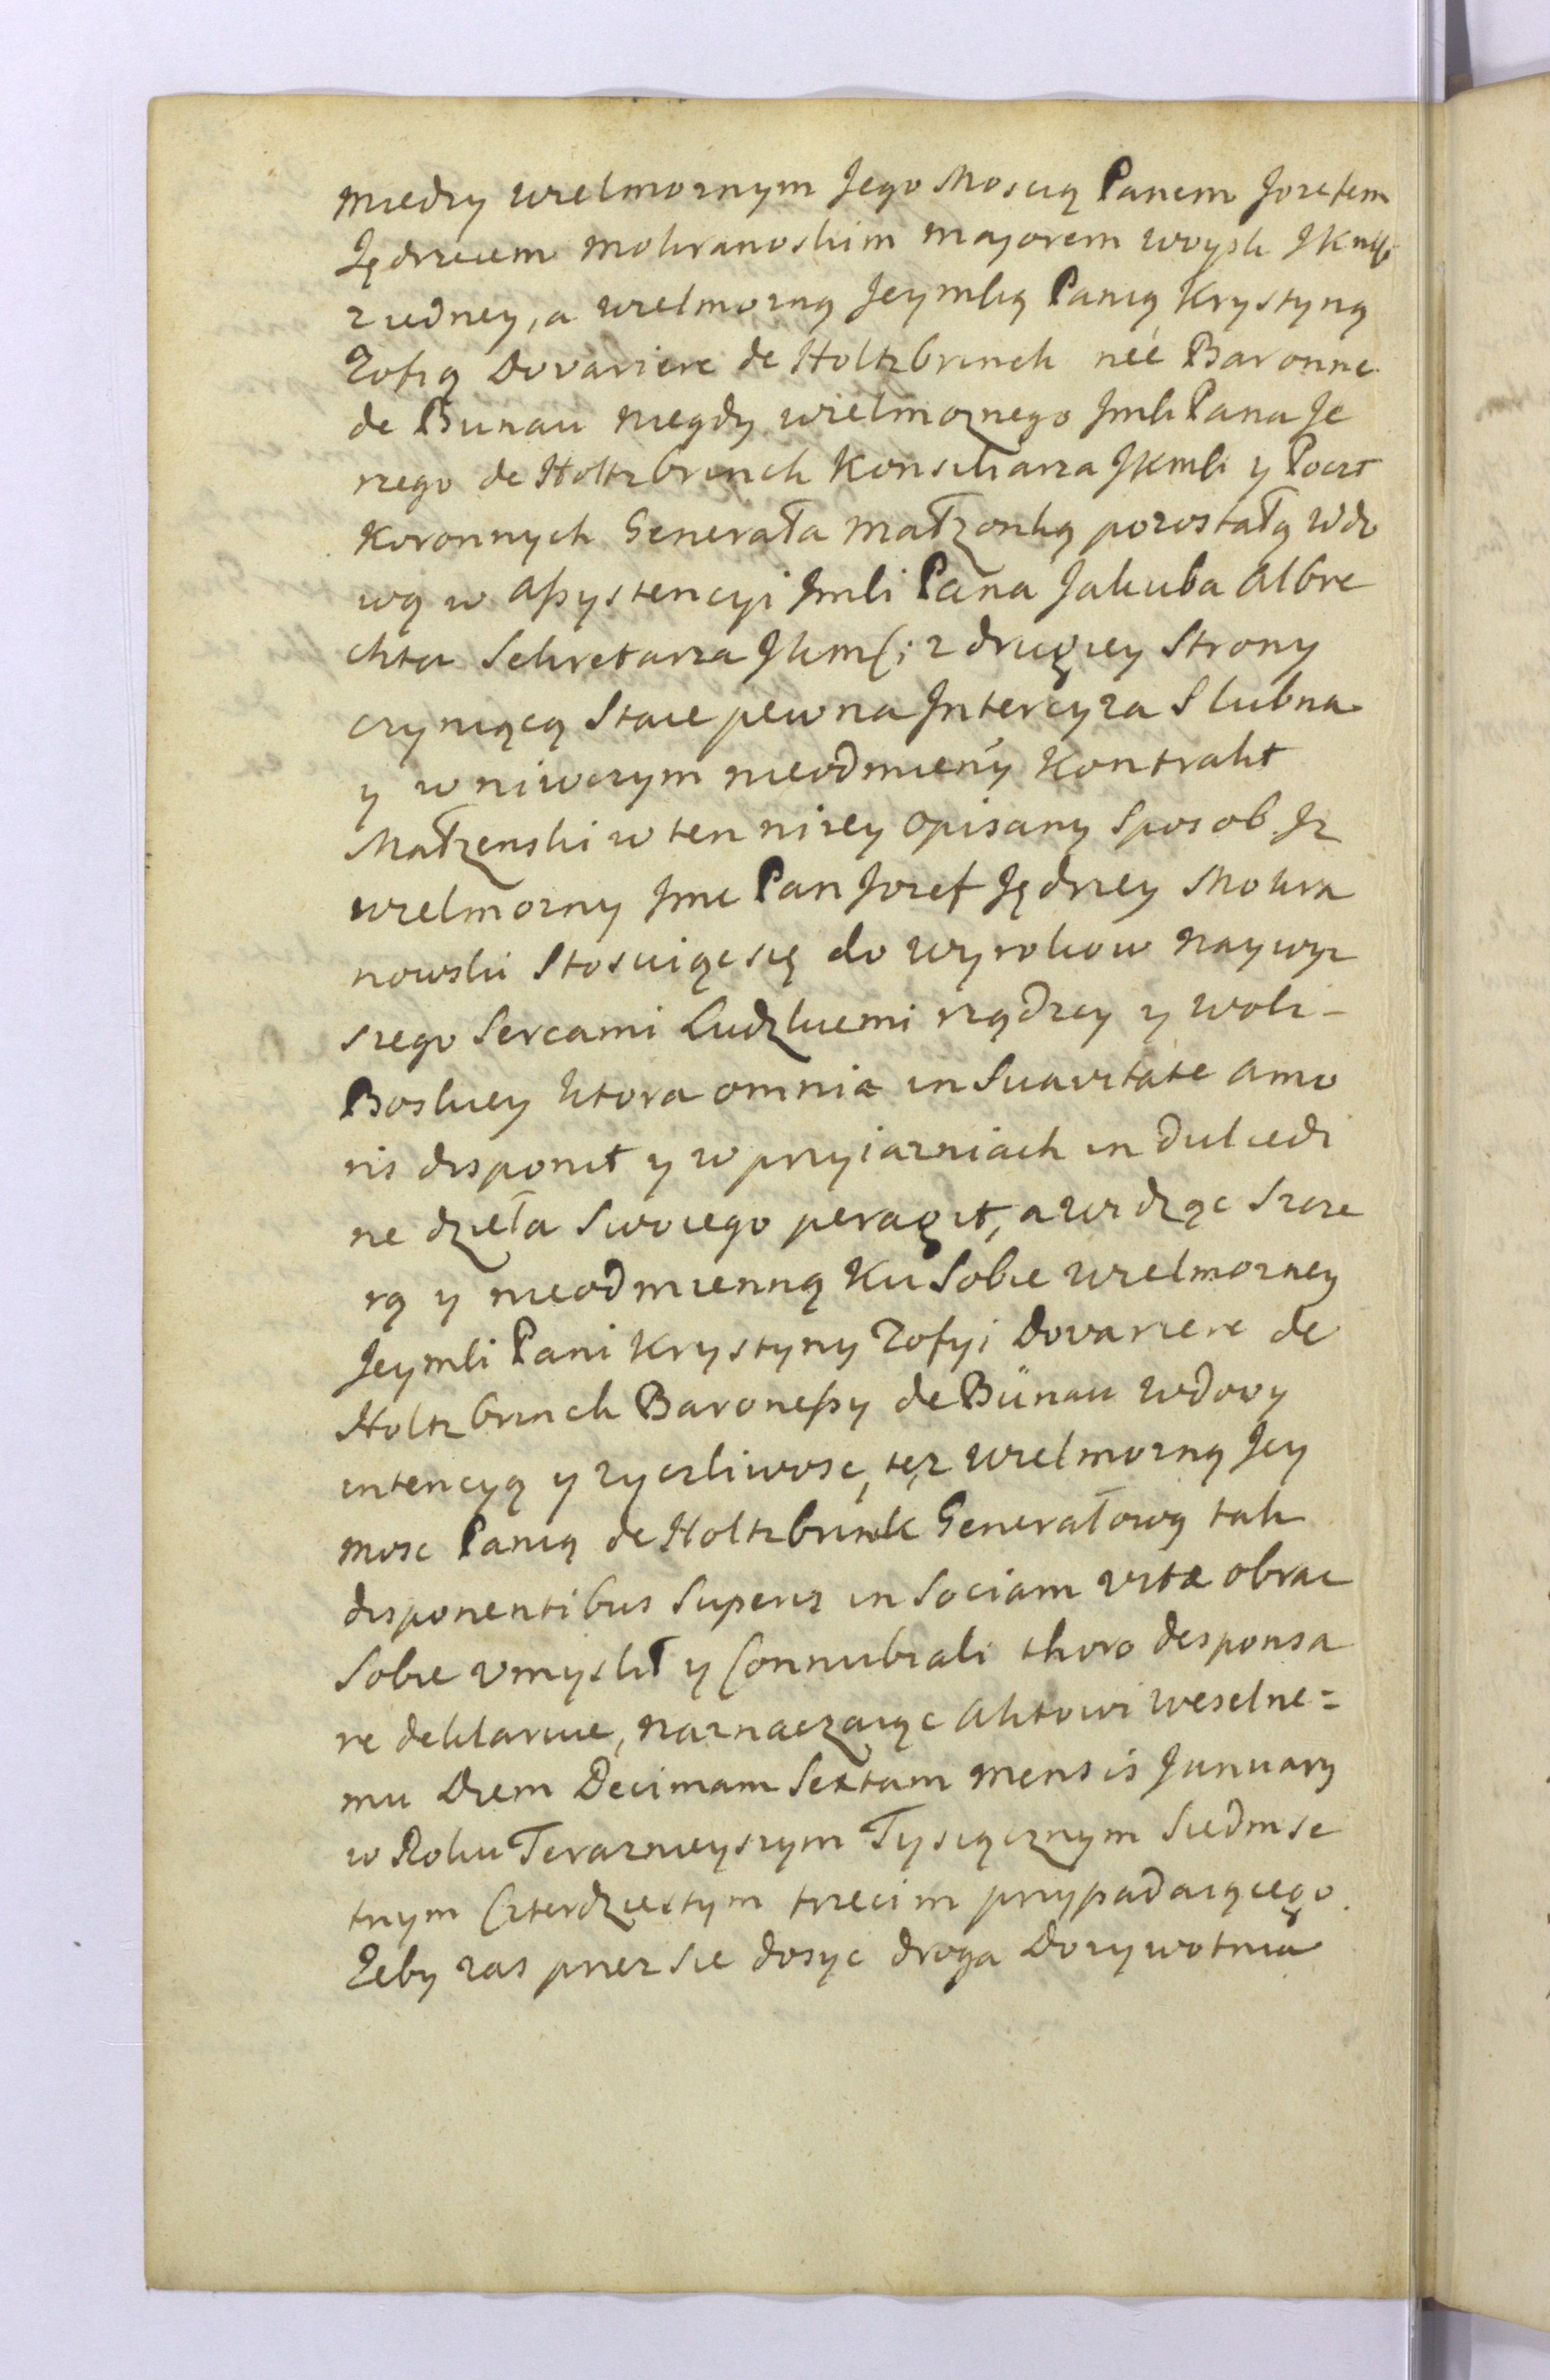 miedzy wielmoznym Jego Moscią Panem Jozefem
Jędrzeiem Mokranoskim Majorem woysk JKmsci
z iedney, a wielmozną Jeymscią Panią Krystyną
Zofią Dovariere de Holtzbrinck neé Baronne
de Bunau niegdy wielmoznego Jmsci Pana Je
rzego de Holtzbrinck Konsiliarza JKmsci y Poczt
Koronnych Generała małzonką pozostałą wdo
wą w assystencyi Jmsci Pana Jakuba Albre
chta Sekretarza JKmsci z drugiey Strony
czyniącą Staie pewna Intercyza Slubna
y w niwczym nieodmieny Kontrakt
Małzenski w ten nizey opisany Sposob Iz
wielmozny Jmc Pan Jozef Jędrzey Mokra
nowski Stosuiąc się do wyrokow naywyz
szego Sercami Ludzkiemi rządzcy y woli -
Boskiey ktora omnia in Suavitate amo
ris disponit y w przyiazniach in dulcedi
ne dzieła Swoiego peragit, a widząc Szcze
rą y nieodmienną Ku Sobie wielmozney
Jeymsci Pani Krystyny Zofyi Dovariere de
Holtzbrinck Baronessy de Bünau wdowy
intencyą y zyczliwosc, tęz wielmozną Jey
mosc Panią de Holtzbrink Generałową tak
disponentibus Superis in Sociam vitæ obrac
Sobie vmyslił y Connubiali thoro desponsa
re deklaruie, naznaczaiąc Aktowi weselne=
mu Diem Decimam Sextam mensis January
w Roku Teraznieyszym Tysiącznym Siedmse
tnym Czterdziestym trzecim przypadaiącego.
Zeby zas przez Sie dosyc droga Dozywotnia